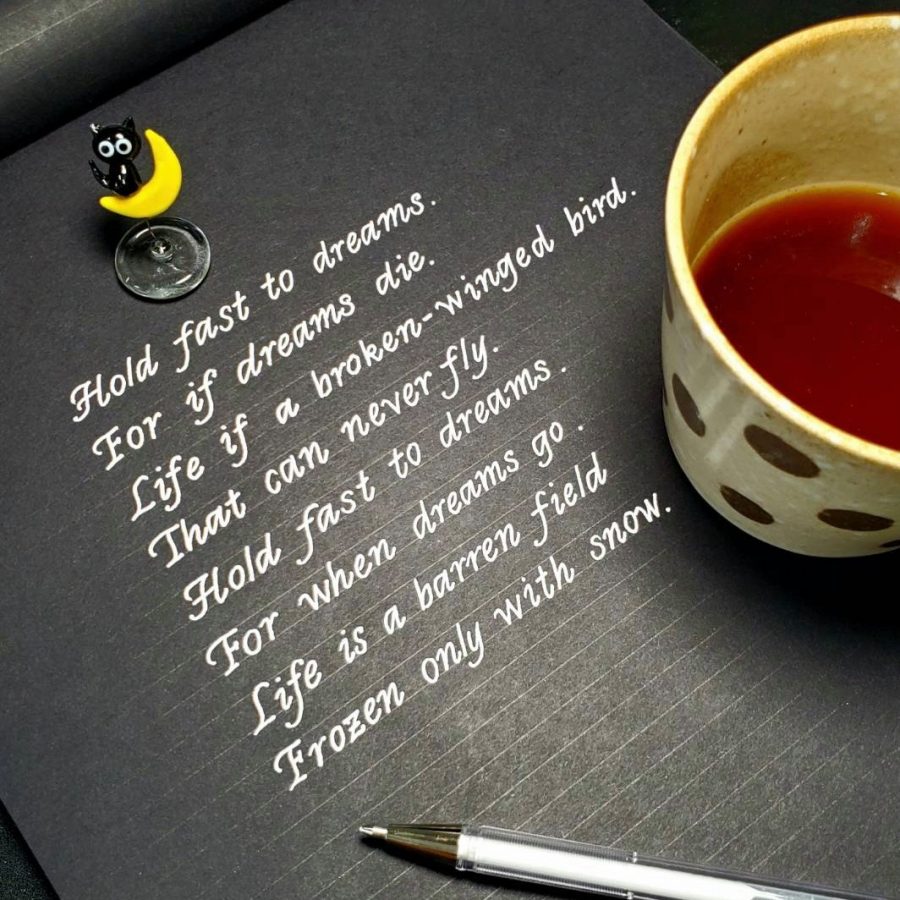 Hold fast to dreams.
For if dreams die.
Life if a broken-winged bird.
That can never fly.
Hold fast to dreams.
For when dreams go.
Life is a barren field
Frozen only with snow.